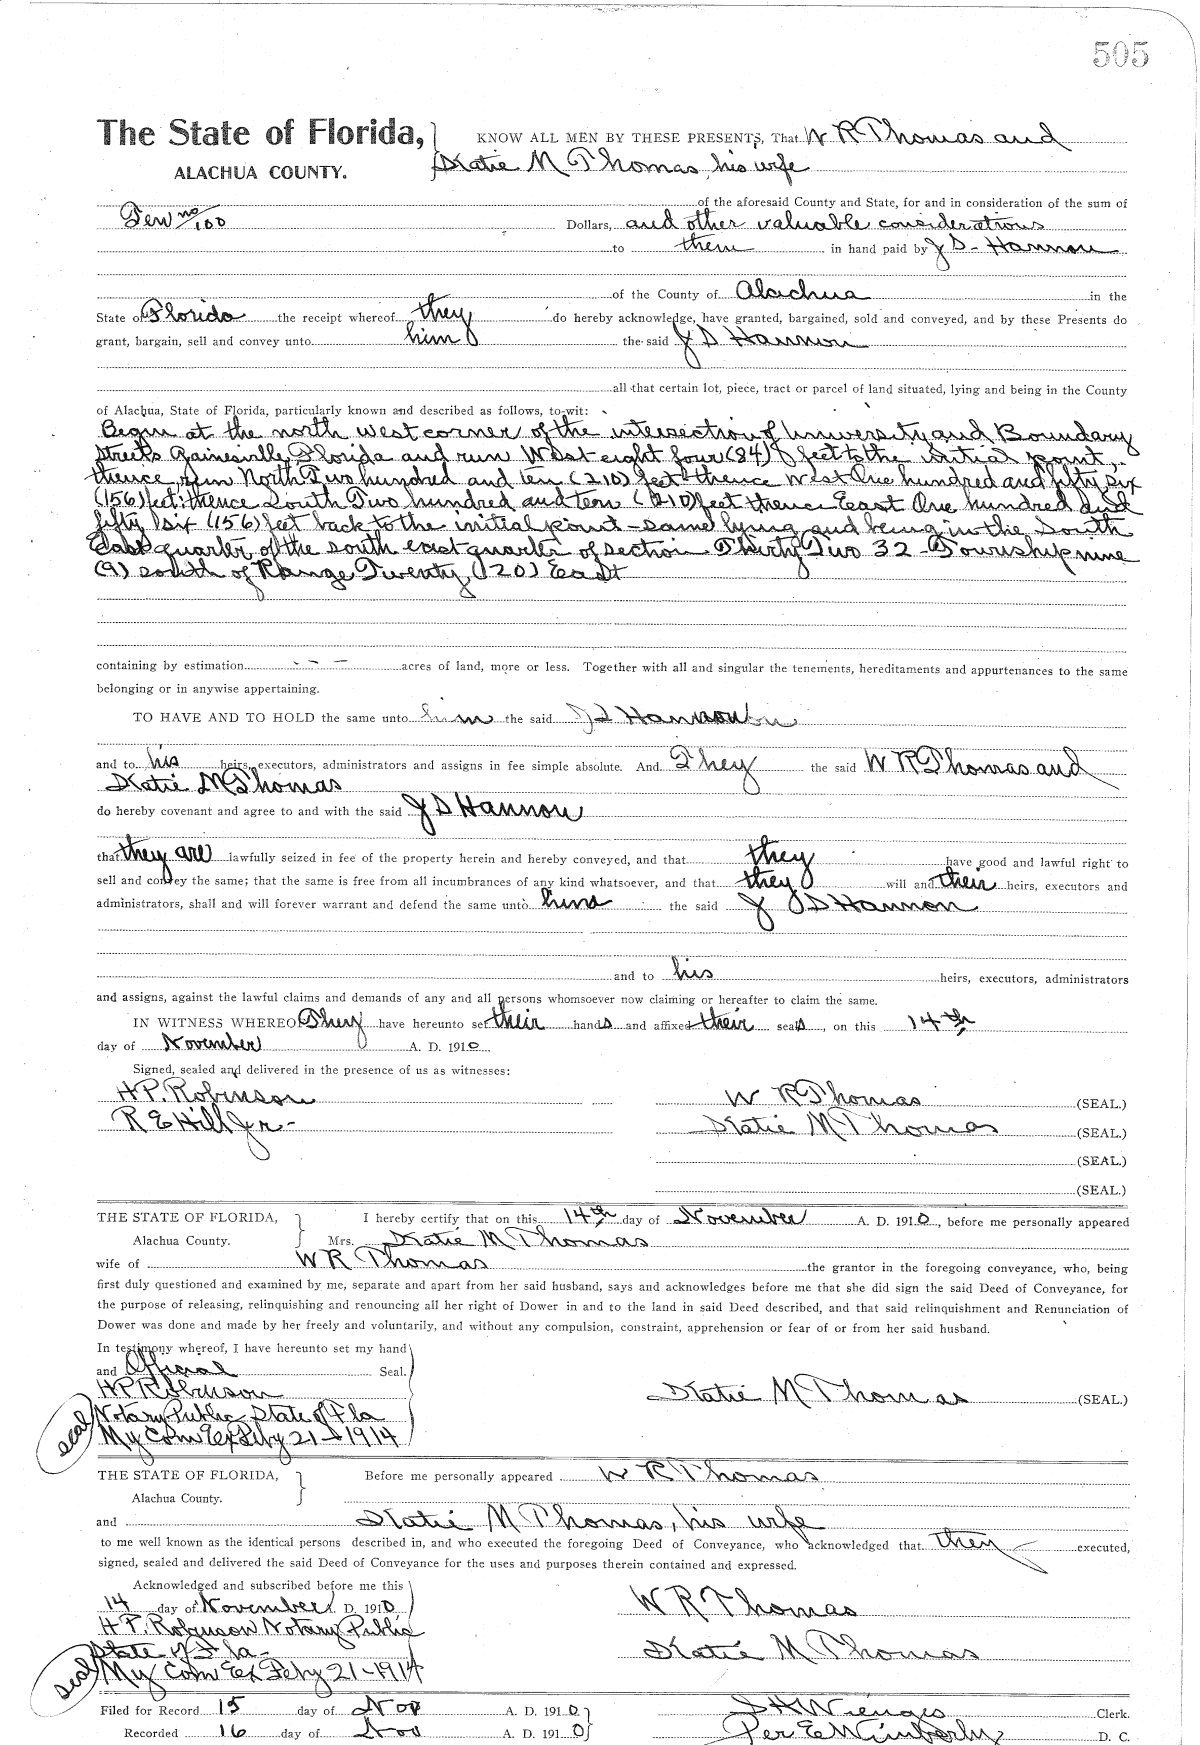 505
The State of Florida, KNOW ALL MEN BY THESE PRESENTS, That W R Thomas and
ALACHUA COUNTY. Katie M Thomas, his wife
of the aforesaid County and State, for and in consideration of the sum of
Ten no/100 Dollars, and other valuable considerations
to them in hand paid by J D - Hannon
of the County of Alachua in the
State of Florida the receipt whereof they do hereby acknowledge, have granted, bargained, sold and conveyed, and by these Presents do
grant, bargain, sell and convey unto him the said J D Hannon
all that certain lot, piece, tract or parcel of land situated, lying and being in the County
of Alachua, State of Florida, particularly known and described as follows, to-wit:
Begin at the north west corner of the intersection of University and Boundary
Streets Gainesville, Florida and run West eight four (84) feet to the initial point,
thence run North Two hundred and ten (210) feet thence West One hundred and fifty six
(156) feet: thence South Two hundred and ten (210) feet thence East One hundred and
fifty six (156) feet back to the initial point - same lying and being in the South
East quarter of the south east quarter of section Thirty Two 32 - Township nine
(9) south of Range Twenty (20) East
containing by estimation - - - acres of land, more or less. Together with all and singular the tenements, hereditaments and appurtenances to the same
belonging or in anywise appertaining.
TO HAVE AND TO HOLD the same unto him the said J D Hannon
and to his heirs, executors, administrators and assigns in fee simple absolute. And They the said W R Thomas and
Katie M Thomas
do hereby covenant and agree to and with the said J D Hannon
that they are lawfully seized in fee of the property herein and hereby conveyed, and that they have good and lawful right to
sell and convey the same; that the same is free from all incumbrances of any kind whatsoever, and that they will and their heirs, executors and
administrators, shall and will forever warrant and defend the same unto him the said J D Hannon
and to his heirs, executors, administrators
and assigns, against the lawful claims and demands of any and all persons whomsoever now claiming or hereafter to claim the same.
IN WITNESS WHEREOF They have hereunto set their hands and affixed their seals, on this 14th
day of November A. D. 1910
Signed, sealed and delivered in the presence of us as witnesses:
H P. Robinson W R Thomas (SEAL.)
R E Hill Jr - Katie M Thomas (SEAL.)
(SEAL.)
(SEAL.)
THE STATE OF FLORIDA, I hereby certify that on this 14th day of November A. D. 1910, before me personally appeared
Alachua County. Mrs. Katie M Thomas
wife of W R Thomas the grantor in the foregoing conveyance, who, being
first duly questioned and examined by me, separate and apart from her said husband, says and acknowledges before me that she did sign the said Deed of Conveyance, for
the purpose of releasing, relinquishing and renouncing all her right of Dower in and to the land in said Deed described, and that said relinquishment and Renunciation of
Dower was done and made by her freely and voluntarily, and without any compulsion, constraint, apprehension or fear of or from her said husband.
In testimony whereof, I have hereunto set my hand
and Official Seal.
H P Robinson Katie M Thomas (SEAL.)
Notary Public State of Fla
seal My Com Ex Feby 21 - 1914
THE STATE OF FLORIDA, Before me personally appeared W R Thomas
Alachua County.
and Katie M Thomas, his wife
to me well known as the identical persons described in, and who executed the foregoing Deed of Conveyance, who acknowledged that they executed,
signed, sealed and delivered the said Deed of Conveyance for the uses and purposes therein contained and expressed.
Acknowledged and subscribed before me this
14 day of November A. D. 1910 W R Thomas
H P. Robinson Notary Public
State of Fla - Katie M Thomas
seal My Com Ex Feby 21 - 1914
Filed for Record 15 day of Nov A. D. 1910 S H Wienges Clerk.
Recorded 16 day of Nov A. D. 1910 Per E Wimberly D. C.